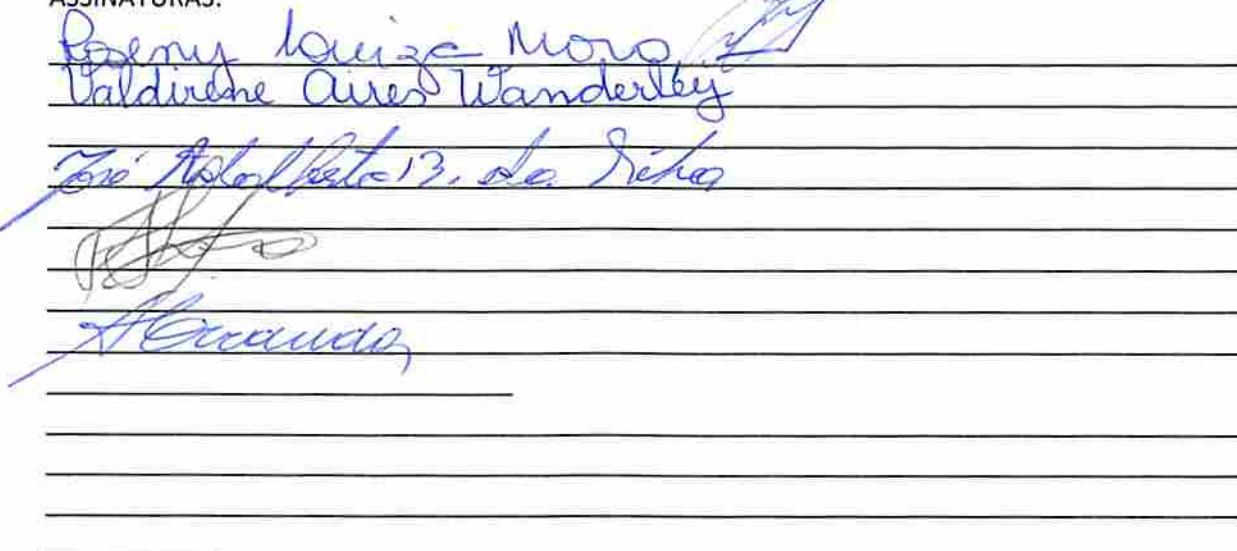 ASSINATURAS:
Roseny Louiza Moro
Valdirene Aires Wanderley
José Adalberto B. da Silva